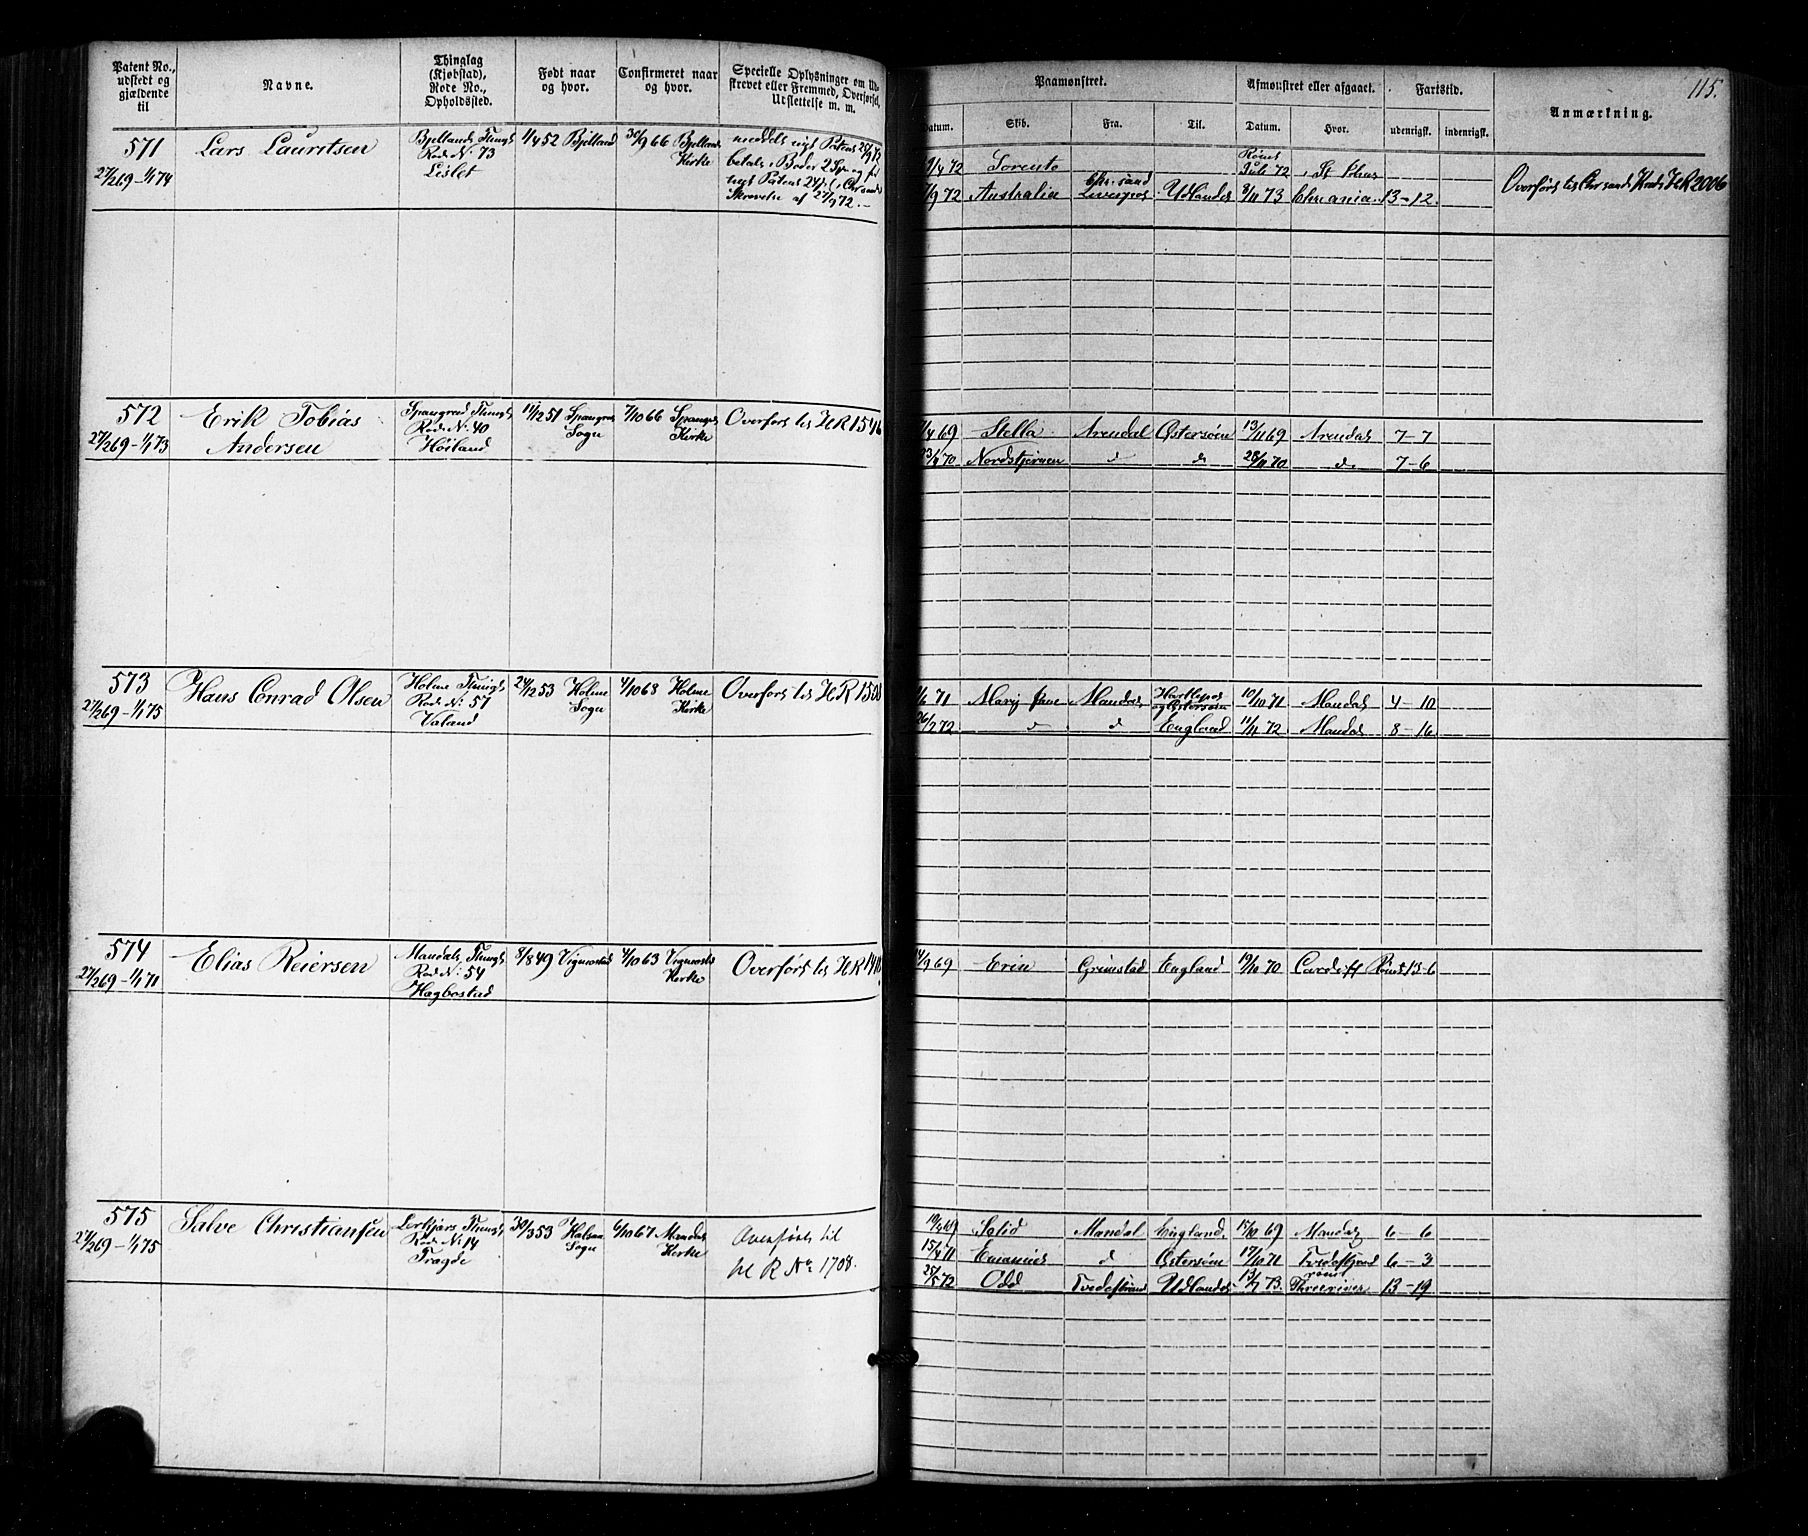 115.
Patent No., udstedt og gjældende til
Navne.
Thinglag (Kjøbstad), Rode No., Opholdssted.
Født naar og hvor.
Confirmeret naar og hvor.
Specielle Oplysninger om Udskrevet eller Fremmed, Overførsel, Udslettelse m. m.
Paamønstret.
Afmønstret eller afgaaet.
Fartstid.
Anmærkning.
Datum.
Skib.
Fra.
Til.
Datum.
Hvor.
udenrigsk.
indenrigsk.
571
27/2 69 - 1/1 74
Lars Lauritsen
Bjellands Thingl
Rode No: 73
Lislet
1/4 52 Bjelland
30/9 66 Bjellands
Kirke
meddelt nyt Patent 25/9 72
betalt i Bøder 2 Sp. og for
nyt Patent 24
Skrivelse af 27/9 72.-
/4 72 Sorento
Rømt
Juli 72 St Johns
/9 72 Australia Chr.sand
Liverpool Udlandet 8/11 73 Chrania. 13-12.
Overført til Chr sands Kreds H R 2006
572
27/2 69 - 1/1 73
Erik Tobias
Andersen
Spangereid Thingl
Rode No: 40
Høiland
11/12 51 Spangereid
Sogn
7/10 66 Spangrds
Kirke
Overført til H R 1546
/4 69 Stella. Arendal Østersøen 13/11 69 Arendal 7-7
23/4 70 Nordstjernen d d 28/11 70 d. 7-6
573
27/2 69 - 1/1 75
Hans Conrad Olsen
Holme Thingl
Rode No: 57
Valand
24/12 53 Holme
Sogn
4/10 68 Holme
Kirke
Overført til H R 1508
/6 71 Mary Jane Mandal Hartlepol
og Østersøen 10/10 71 Mandal 4-10
26/2 72 d d England 11/11 72 Mandal 8-16
574
27/2 69 - 1/1 71
Elias Reiersen
Mandals Thingl
Rode No: 54
Hagbostad
8/8 49 Vigmostad
4/10 63 Vigmostds
Kirke
Overført til H R 1410
/9 69 Erin Grimstad England 19/10 70 Cardiff Rømt 13-6
575
27/2 69 - 1/1 75
Salve Christiansen
Rode No 14
Tragde
30/3 53 Halsaa
Sogn
6/10 67 Mandal
Kirke
Overført til
H R No 1708.
19/4 69 Solid Mandal England. 15/10 69 Mandal 6-6
15/4 71 d Østersøen 17/10 71 Tvedestrand 6-3
25/5 72 Odd Tvedestrand Udlandet 13/7 73. rømt
Threerivers 13-19